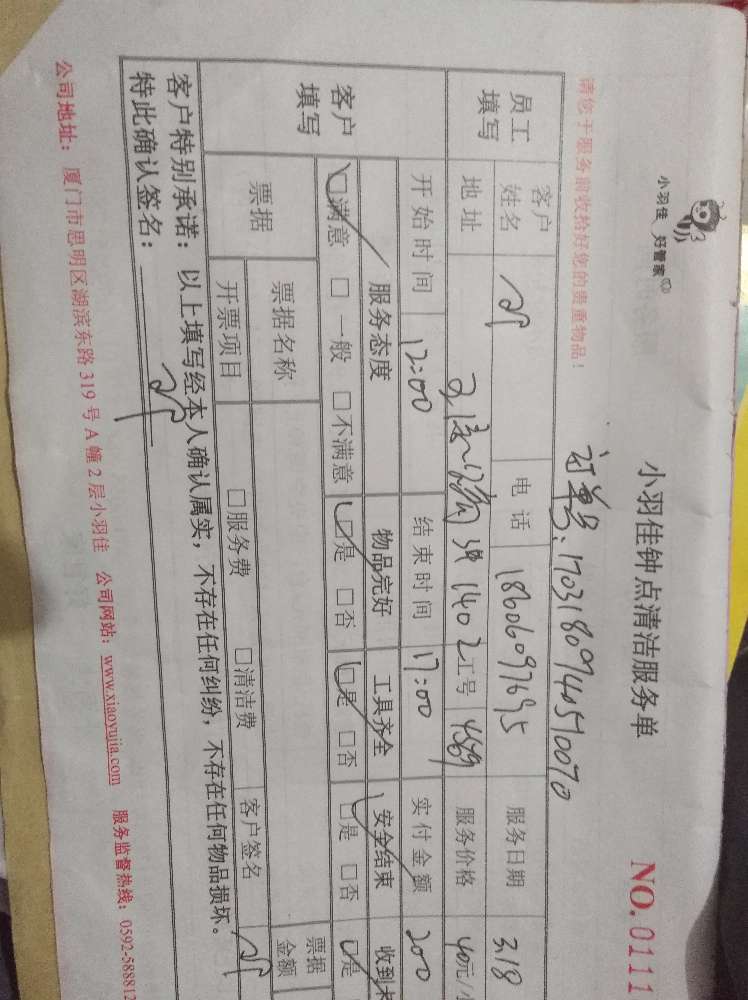 小羽佳 好管家
小羽佳钟点清洁服务单
NO.0111
请您于服务前收拾好您的贵重物品!
订单号:17031809440570070
员工填写
客户姓名 电话 18606097695 服务日期 3.18
地址 1402 工号 4569 服务价格 40元/小
开始时间 12:00 结束时间 17:00 实付金额 200
客户填写
服务态度 物品完好 工具齐全 安全结束 收到
□满意 □一般 □不满意 □是 □否 □是 □否 □是 □否 □是
票据 票据名称 票据金额
开票项目 □服务费 □清洁费 客户签名
客户特别承诺:以上填写经本人确认属实,不存在任何纠纷,不存在任何物品损坏。
特此确认签名:
公司地址:厦门市思明区湖滨东路319号A幢2层小羽佳 公司网站:www.xiaoyujia.com 服务监督热线:0592-588812